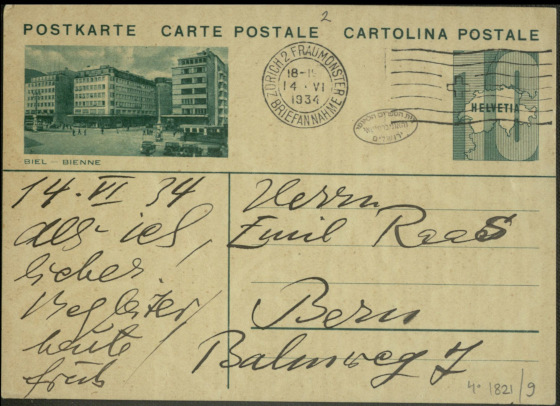 2
POSTKARTE CARTE POSTALE CARTOLINA POSTALE
ZÜRICH 2 FRAUMÜNSTER
18-1
14 · VI
1934
BRIEFANNAHME
10
HELVETIA
BIEL – BIENNE
14. VI 34
als ich,
lieber
Begleiter,
heute
früh
Herrn
Emil Raas
Bern
Balmweg 7
4° 1821/9